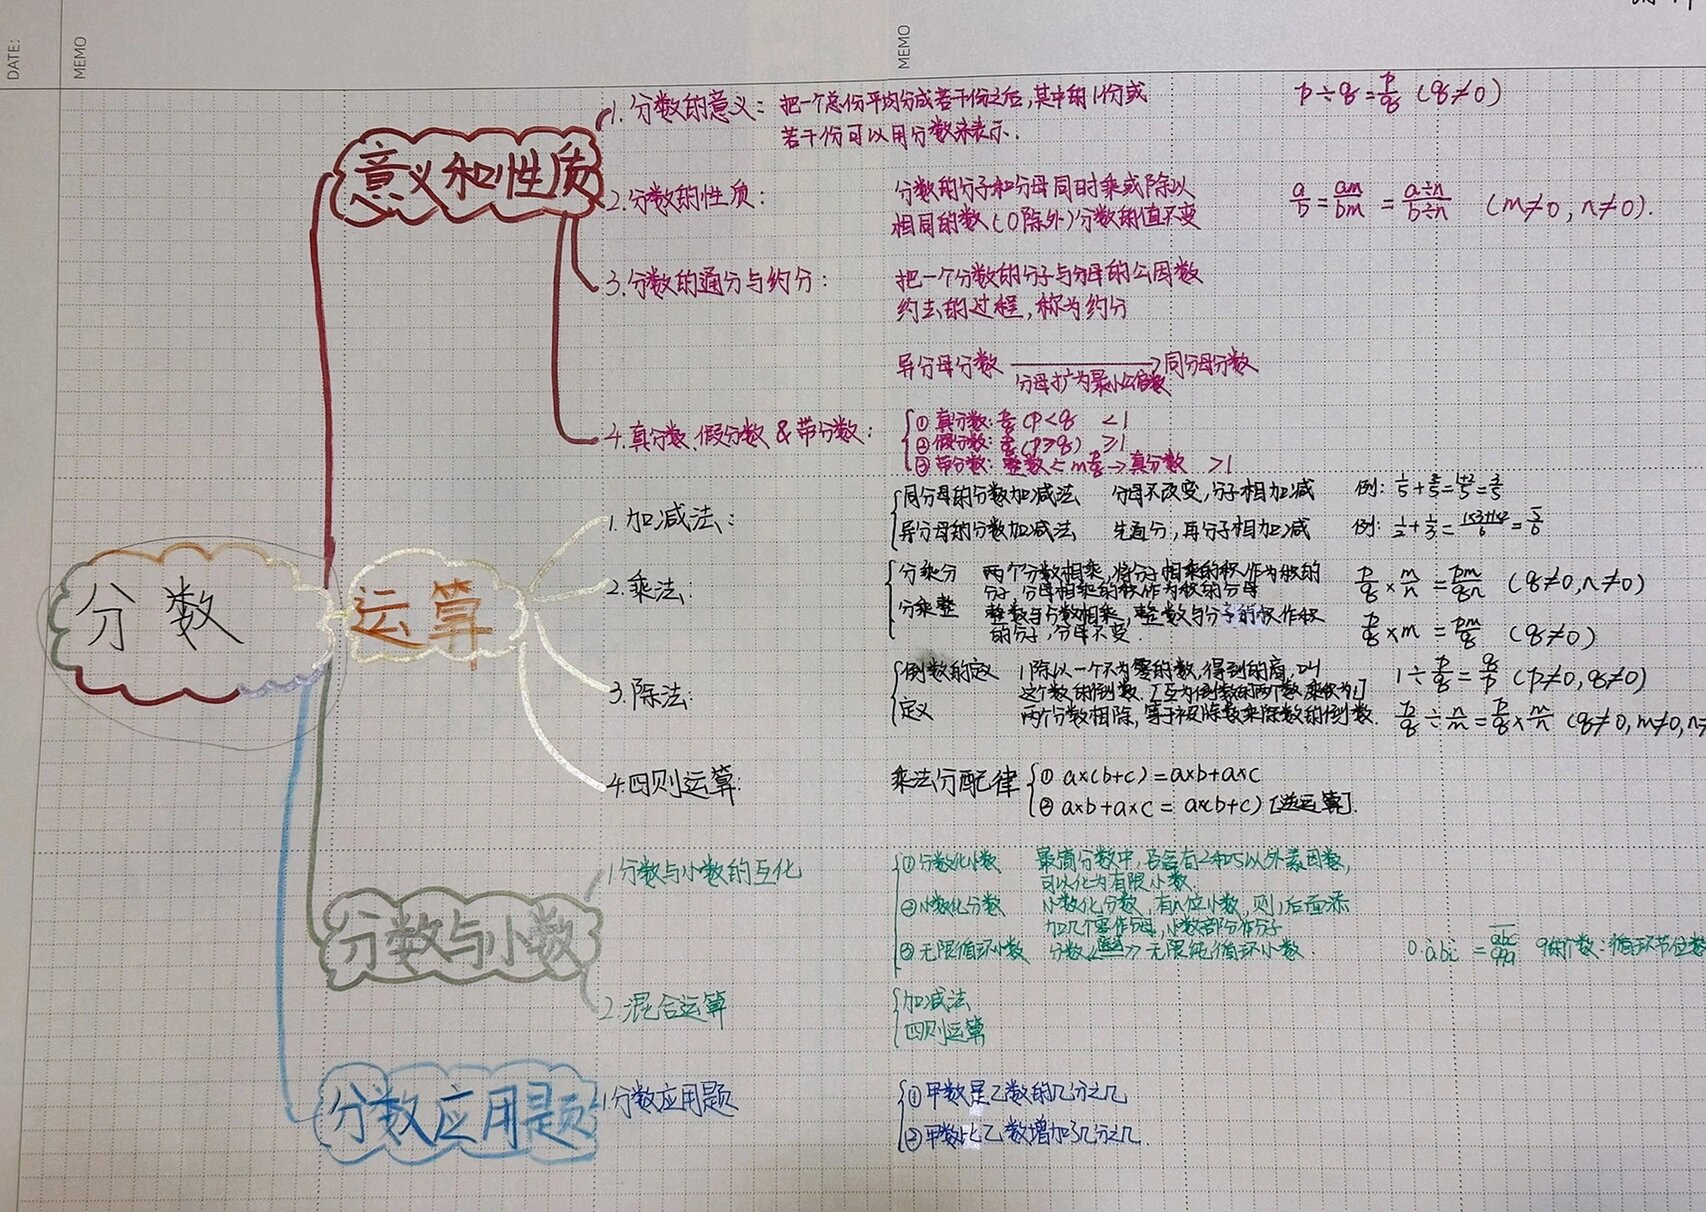 DATE:
MEMO
MEMO
分数
意义和性质
1.分数的意义：把一个总份平均分成若干份之后,其中的1份或
若干份可以用分数来表示.
p÷q=p/q (q≠0)
2.分数的性质：
分数的分子和分母同时乘或除以
相同的数(0除外)分数的值不变
a/b=am/bm=a÷n/b÷n (m≠0,n≠0).
3.分数的通分与约分：
把一个分数的分子与分母的公因数
约去的过程,称为约分
异分母分数 → 同分母分数
分母扩为最小公倍数
4.真分数、假分数&带分数：
①真分数:p/q(p<q) <1
②假分数:p/q(p≥q) ≥1
③带分数:整数←m p/q→真分数 >1
运算
1.加减法：
同分母的分数加减法 分母不改变,分子相加减 例:1/5+2/5=1+2/5=3/5
异分母的分数加减法 先通分,再分子相加减 例:1/2+1/3=1×3+1×2/6=5/6
2.乘法:
分乘分 两个分数相乘,将分子相乘的积作为积的
分子,分母相乘的积作为积的分母
p/q×m/n=pm/qn (q≠0,n≠0)
分乘整 整数与分数相乘,整数与分子的积作积
的分子,分母不变.
p/q×m=pm/q (q≠0)
3.除法:
倒数的定 1除以一个不为零的数,得到的商,叫
这个数的倒数.[互为倒数的两个数乘积为1]
1÷p/q=q/p (p≠0,q≠0)
定义 两个分数相除,等于被除数乘除数的倒数.
p/q÷n/m=p/q×m/n (q≠0,m≠0,n≠
4.四则运算:
乘法分配律
①a×(b+c)=a×b+a×c
②a×b+a×c=a×(b+c) [逆运算].
分数与小数
1.分数与小数的互化
①分数化小数 最简分数中,否含有2和5以外素因数,
可以化为有限小数.
②小数化分数 小数化分数,有n位小数,则1后面添
加几个零作分母,小数部份作分子
③无限循环小数 分数 无限纯循环小数
9的个数:循环节位数
2.混合运算
加减法
四则运算
分数应用题
1.分数应用题
①甲数是乙数的几分之几
②甲数比乙数增加了几分之几.